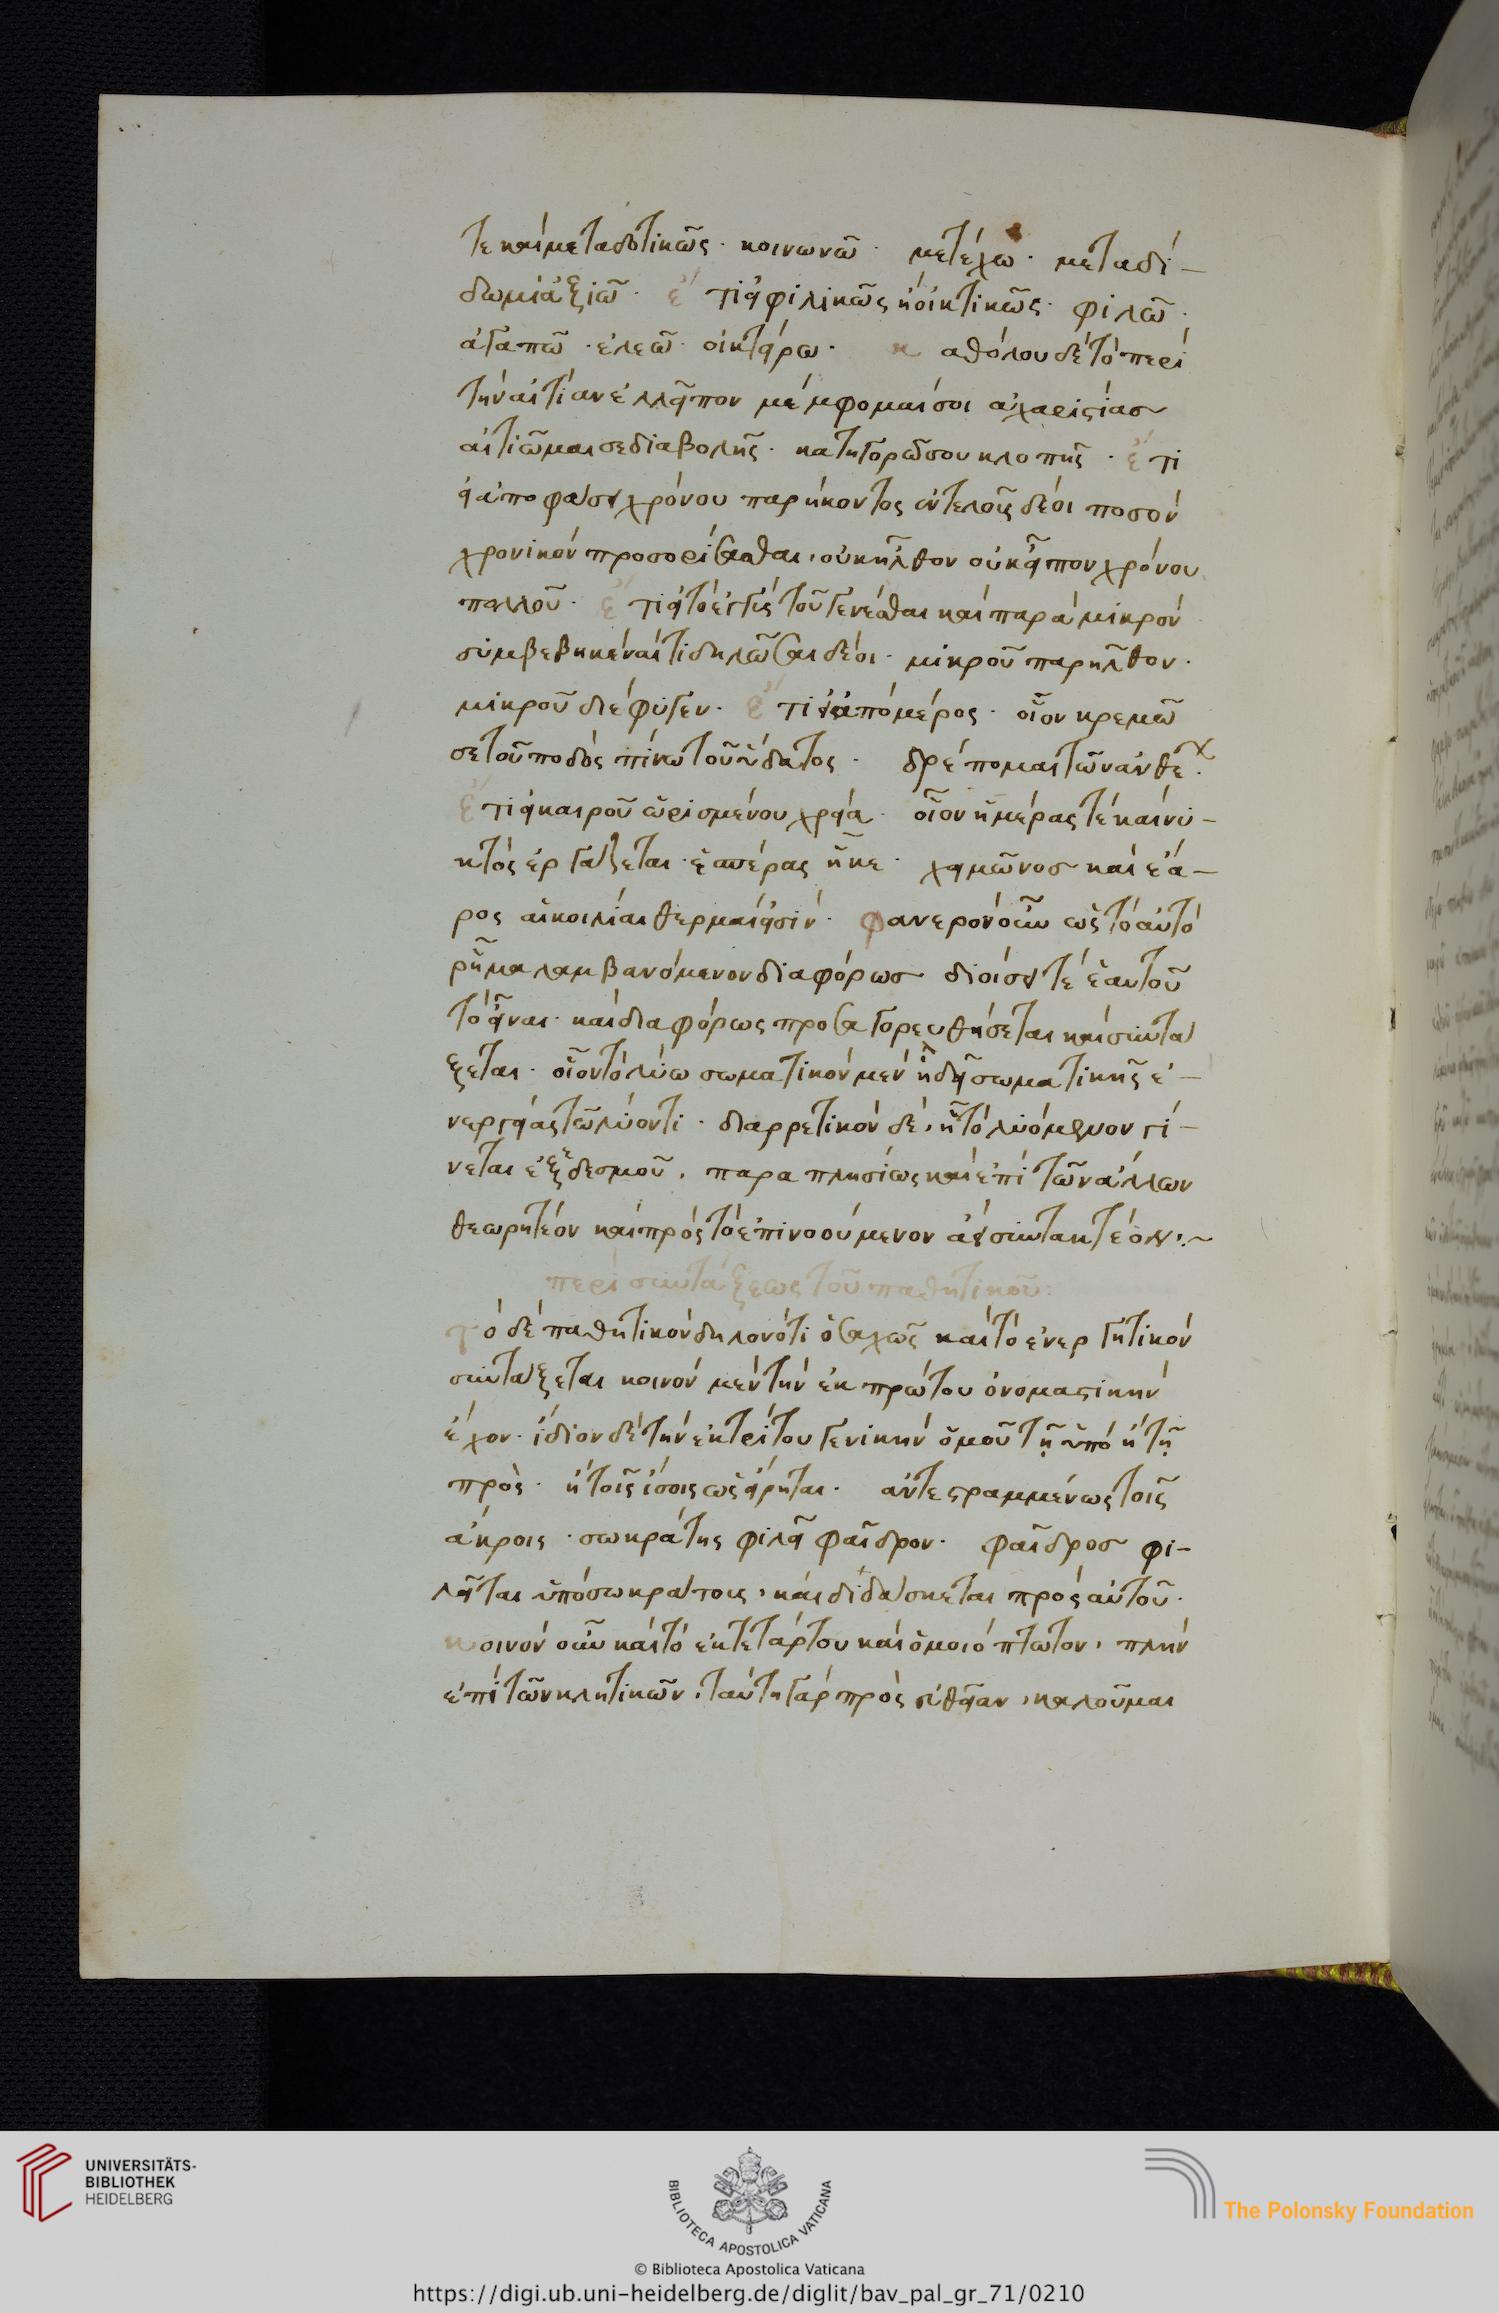 τε καὶ μεταδοτικῶς · κοινωνῶ · μετέχω · μεταδί-
δωμι ἀξιῶ · ἔτι εἰ φιλικῶς ἢ οἰκτικῶς · φιλῶ ·
ἀγαπῶ · ἐλεῶ · οἰκτείρω · καθόλου δὲ τὸ περὶ
τὴν αἰτίαν ἐλλεῖπον μέμφομαί σοι ἀχαριστίας
αἰτιῶμαι σε διαβολῆς · κατηγορῶ σου κλοπῆς · ἔτι
εἰ ἀποφάσει χρόνου παρήκοντος ἐντελοῦς δέοι ποσὸν
χρονικὸν προσορίσασθαι, οὐκ ἦλθον οὐκ εἶπον χρόνου
πολλοῦ · ἔτι εἰ τὸ ἐγγὺς τοῦ γενέσθαι καὶ παρὰ μικρὸν
συμβεβηκέναι τι δηλῶσαι δέοι · μικροῦ παρῆλθον ·
μικροῦ διέφυγεν · ἔτι εἰ ἀπὸ μέρος · οἷον κρεμῶ
σε τοῦ ποδὸς πίνω τοῦ ὕδατος · δρέπομαι τῶν ἀνθέ ·
ἔτι εἰ καιροῦ ὡρισμένου χρεία · οἷον ἡμέρας τὲ καὶ νυ-
κτὸς ἐργάζεται · ἑσπέρας ἧκε · χειμῶνος καὶ ἔα-
ρος αἱ κοιλίαι θερμαί εἰσιν · φανερὸν οὖν ὡς τὸ αὐτὸ
ῥῆμα λαμβανόμενον διαφόρως διοίσει τὲ ἑαυτοῦ
τὸ εἶναι · καὶ διαφόρως προσαγορευθήσεται καὶ συντά
ξεται · οἷον τὸ λύω σωματικὸν μὲν ἢ δεῖ σωματικῆς ἐ-
νεργείας τῶ λύοντι · διαιρετικὸν δὲ, ἢ τὸ λυόμενον γί-
νεται ἔξω δεσμοῦ · παραπλησίως καὶ ἐπὶ τῶν ἄλλων
θεωρητέον καὶ πρὸς τὸ ἐπινοούμενον ἀεὶ συντακτέον ·~
περὶ συντάξεως τοῦ παθητικοῦ:
τὸ δὲ παθητικὸν δηλονότι ὁσαχῶς καὶ τὸ ἐνεργητικὸν
συντάξεται κοινὸν μὲν τὴν ἐκ πρώτου ὀνομαστικὴν
ἔχον · ἴδιον δὲ τὴν ἐκ τρίτου γενικὴν ὁμοῦ τῇ ὑπὸ ἢ τῇ
πρὸς · ἢ τοῖς ἴσοις ὡς εἴρηται · ἀντεστραμμένως τοῖς
ἄκροις · σωκράτης φιλεῖ φαῖδρον · φαῖδρος φι-
λεῖται ὑπὸ σωκράτους, καὶ διδάσκεται πρὸς αὐτοῦ ·
κοινὸν οὖν καὶ τὸ ἐκ τετάρτου καὶ ὁμοιόπτωτον, πλὴν
ἐπὶ τῶν κλητικῶν · ταύτη γὰρ πρὸς εὐθεῖαν, καλοῦμαι
UNIVERSITÄTS-
BIBLIOTHEK
HEIDELBERG
BIBLIOTECA APOSTOLICA VATICANA
The Polonsky Foundation
© Biblioteca Apostolica Vaticana
https://digi.ub.uni-heidelberg.de/diglit/bav_pal_gr_71/0210